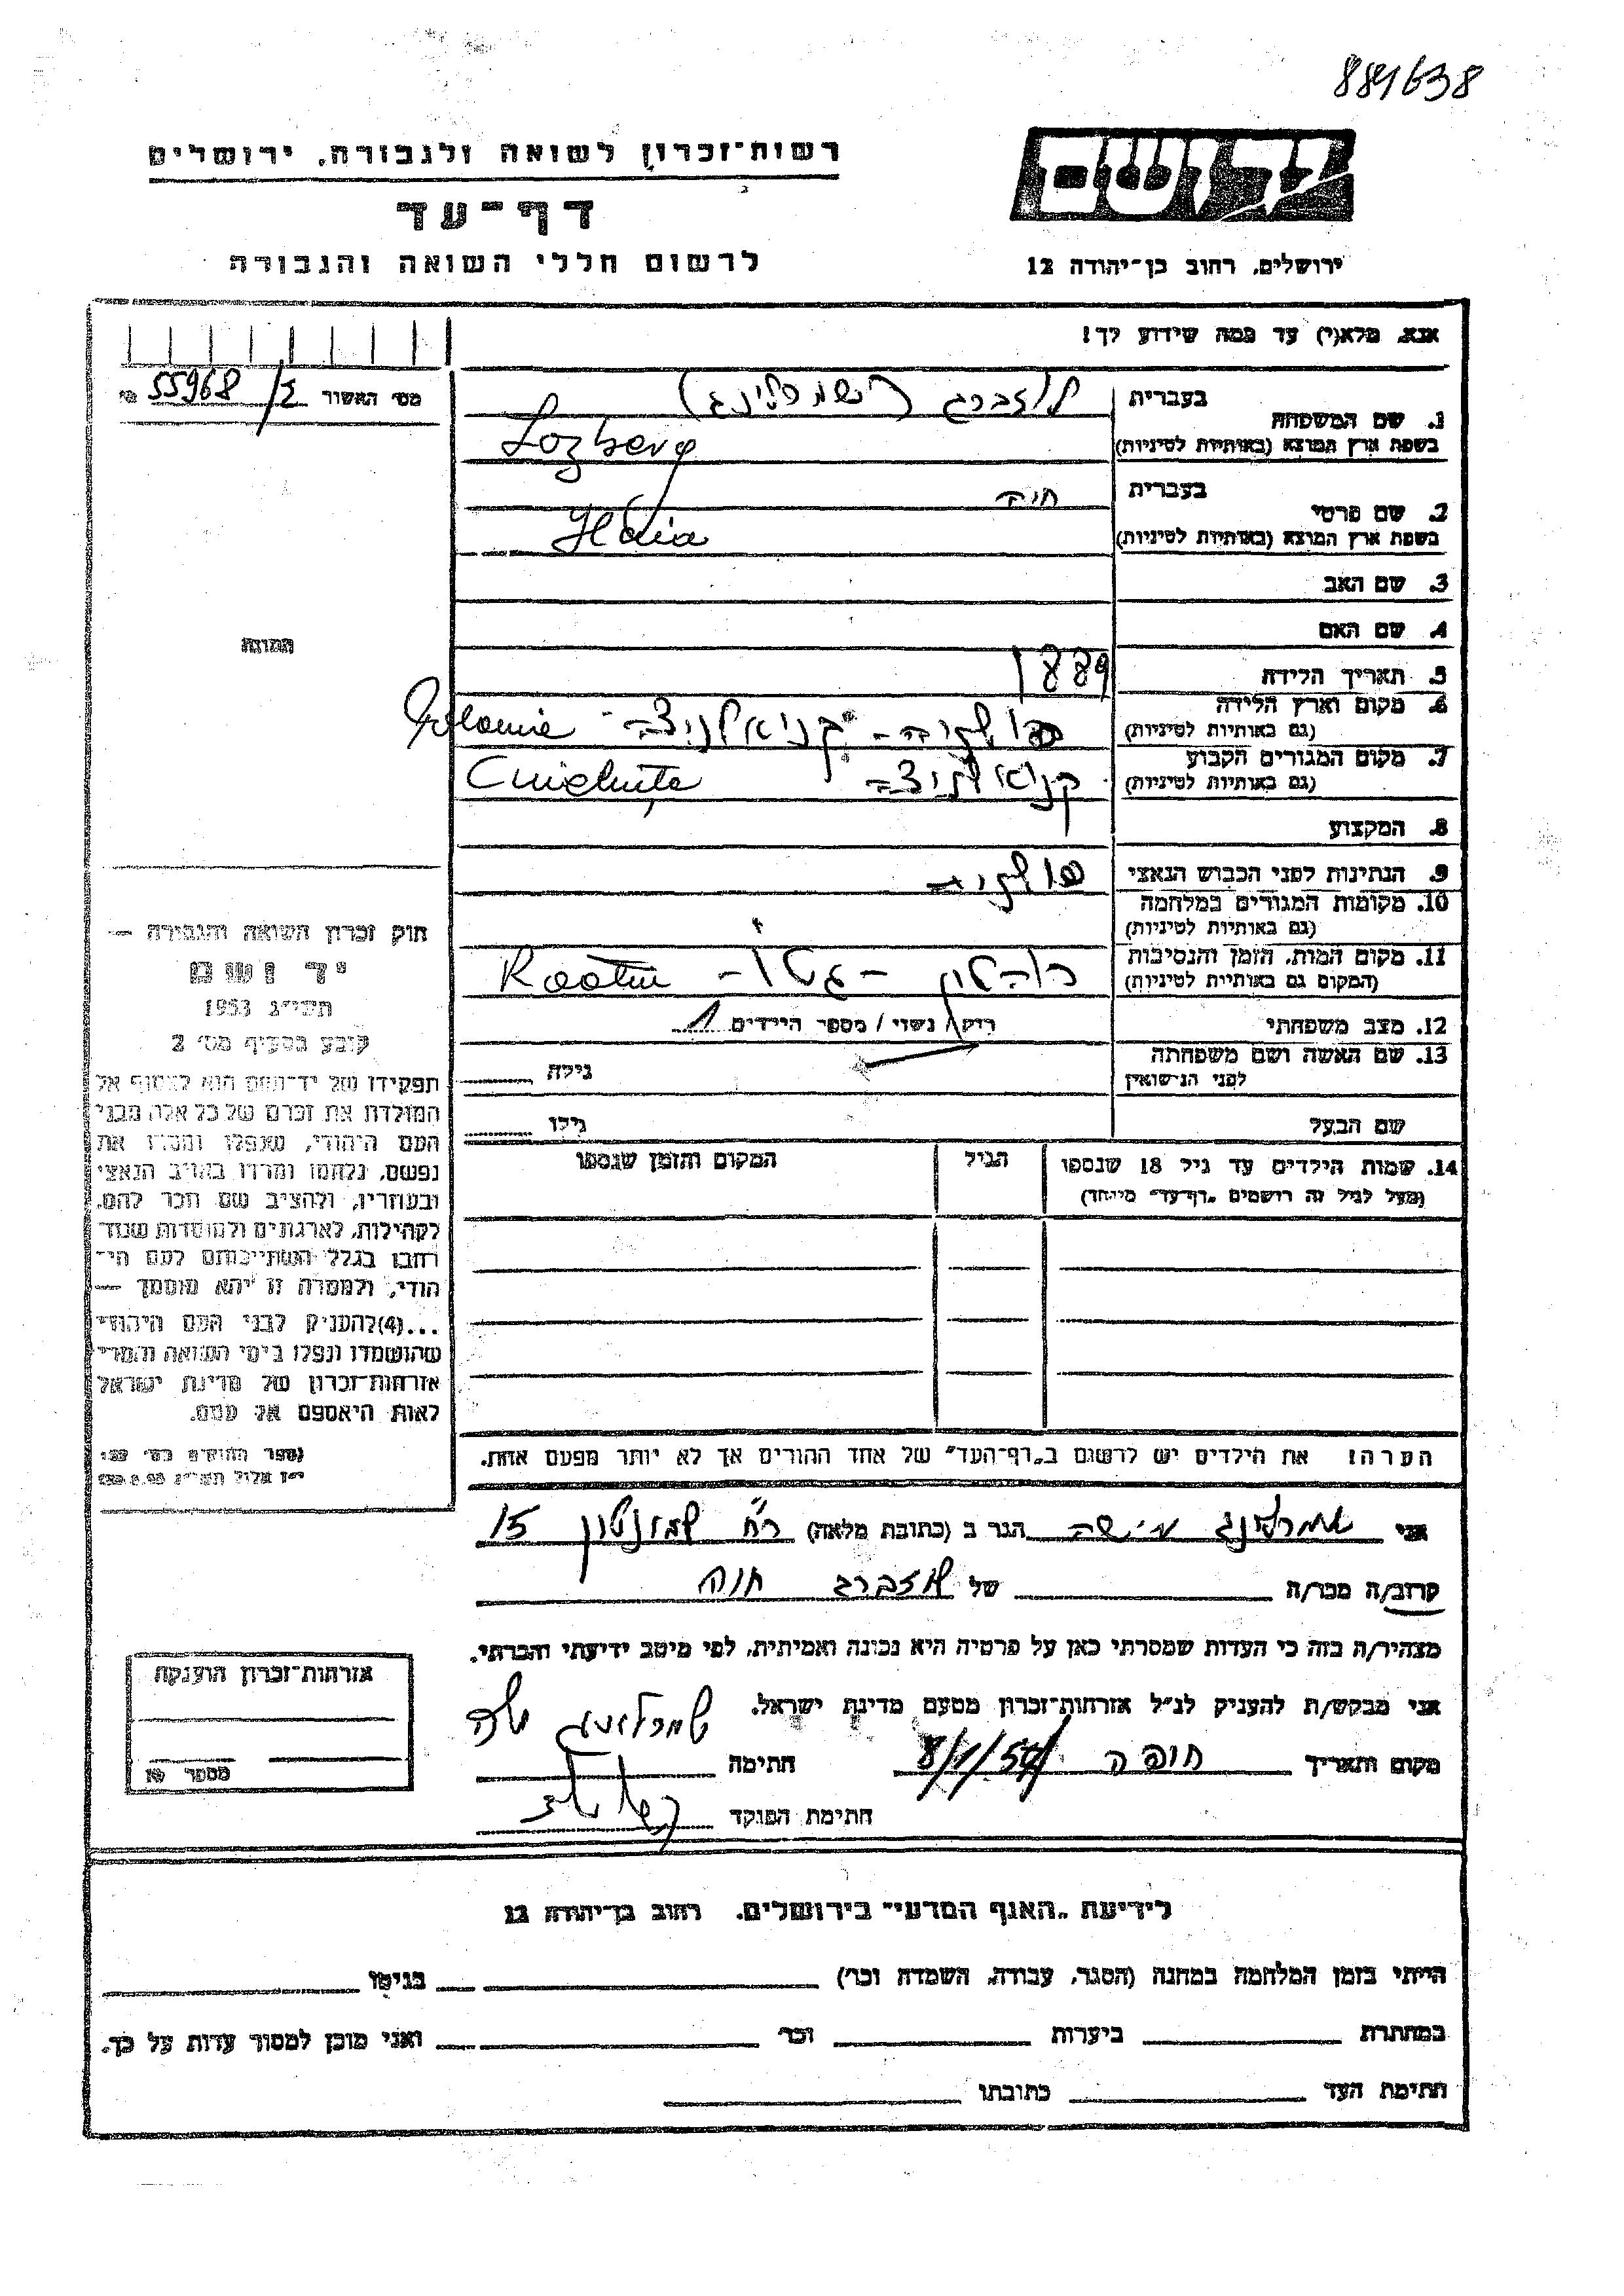 889638
רשות־זכרון לשואה ולגבורה, ירושלים
יד ושם
דף־עד
לרשום חללי השואה והגבורה
ירושלים, רחוב בן־יהודה 12
אנא, מלא(י) עד כמה שידוע לך!
מס' האשור 55968/
1. שם המשפחה
בעברית לוזברג
בשפת ארץ המוצא (באותיות לטיניות) Lozberg
2. שם פרטי
בעברית חיה
בשפת ארץ המוצא (באותיות לטיניות) Haia
3. שם האב
4. שם האם
5. תאריך הלידה 1889
6. מקום וארץ הלידה
(גם באותיות לטיניות)
7. מקום המגורים הקבוע
(גם באותיות לטיניות)
8. המקצוע
9. הנתינות לפני הכבוש הנאצי פולניה
10. מקומות המגורים במלחמה
(גם באותיות לטיניות)
11. מקום המות, הזמן והנסיבות
(המקום גם באותיות לטיניות) גטו
12. מצב משפחתי רווק / נשוי / מספר הילדים 1
13. שם האשה ושם משפחתה
לפני הנישואין גילה
שם הבעל גילו
14. שמות הילדים עד גיל 18 שנספו
(מעל לגיל זה רושמים „דף־עד" מיוחד)
הגיל
המקום והזמן שנספו
הערה: את הילדים יש לרשום ב„דף־העד" של אחד ההורים אך לא יותר מפעם אחת.
התמונה
חוק זכרון השואה והגבורה —
יד ושם
תשי"ג 1953
קובע בסעיף מס' 2
תפקידו של יד־ושם הוא לאסוף אל
המולדת את זכרם של כל אלה מבני
העם היהודי, שנפלו ומסרו את
נפשם, נלחמו ומרדו באויב הנאצי
ובעוזריו, ולהציב שם וזכר להם,
לקהילות, לארגונים ולמוסדות שנח־
רבו בגלל השתייכותם לעם הי־
הודי, ולמטרה זו יהא מוסמך —
...(4) להעניק לבני העם היהודי
שהושמדו ונפלו בימי השואה והמרי
אזרחות־זכרון של מדינת ישראל
לאות היאספם אל עמם.
אני הגר ב (כתובת מלאה) רח' 15
קרוב/ה מכר/ה של לוזברג חיה
מצהיר/ה בזה כי העדות שמסרתי כאן על פרטיה היא נכונה ואמיתית, לפי מיטב ידיעתי והכרתי.
אני מבקש/ת להעניק לנ"ל אזרחות־זכרון מטעם מדינת ישראל.
מקום ותאריך חיפה חתימה
חתימת הפוקד
אזרחות־זכרון הוענקה
מספר №
לידיעת „האגף המדעי" בירושלים, רחוב בן־יהודה 12
הייתי בזמן המלחמה במחנה (הסגר, עבודה, השמדה וכו') בגיטו
במחתרת ביערות וכו' ואני מוכן למסור עדות על כך.
חתימת העד כתובתו